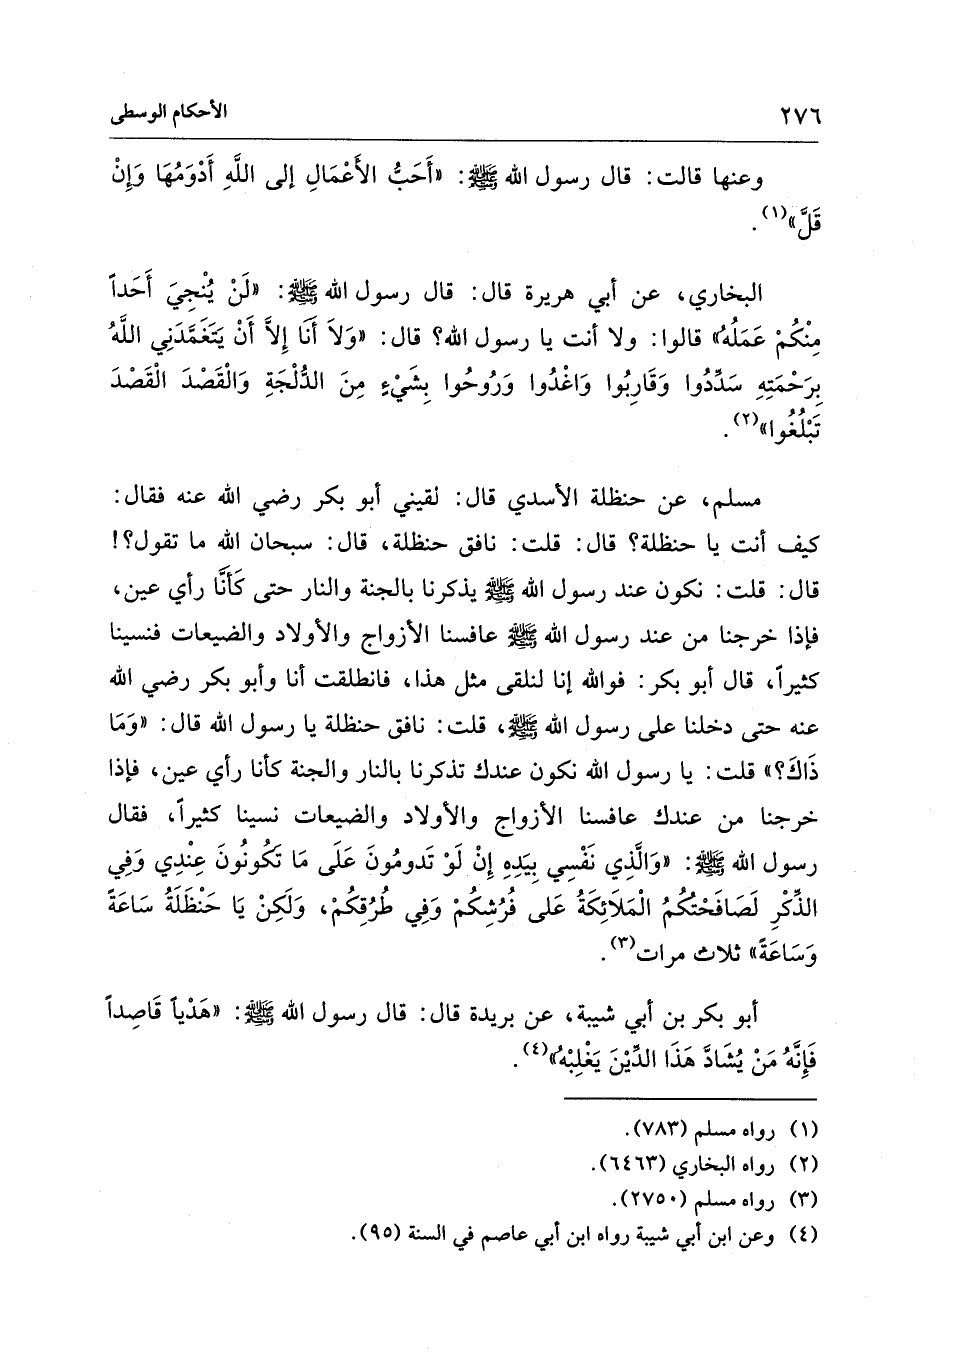 ٢٧٦ الأحكام الوسطى
وعنها قالت: قال رسول الله ﷺ: «أَحَبُّ الأَعْمَالِ إلى اللَّهِ أَدْوَمُهَا وَإِنْ
قَلَّ»(١).
البخاري، عن أبي هريرة قال: قال رسول الله ﷺ: «لَنْ يُنْجِيَ أَحَداً
مِنْكُمْ عَمَلُهُ» قالوا: ولا أنت يا رسول الله؟ قال: «وَلاَ أَنَا إِلاَّ أَنْ يَتَغَمَّدَنِي اللَّهُ
بِرَحْمَتِهِ سَدِّدُوا وَقَارِبُوا وَاغْدُوا وَرُوحُوا بِشَيْءٍ مِنَ الدُّلْجَةِ وَالْقَصْدَ الْقَصْدَ
تَبْلُغُوا»(٢).
مسلم، عن حنظلة الأسدي قال: لقيني أبو بكر رضي الله عنه فقال:
كيف أنت يا حنظلة؟ قال: قلت: نافق حنظلة، قال: سبحان الله ما تقول؟!
قال: قلت: نكون عند رسول الله ﷺ يذكرنا بالجنة والنار حتى كَأَنَّا رأي عين،
فإذا خرجنا من عند رسول الله ﷺ عافسنا الأزواج والأولاد والضيعات فنسينا
كثيراً، قال أبو بكر: فوالله إنا لنلقى مثل هذا، فانطلقت أنا وأبو بكر رضي الله
عنه حتى دخلنا على رسول الله ﷺ، قلت: نافق حنظلة يا رسول الله قال: «وَمَا
ذَاكَ؟» قلت: يا رسول الله نكون عندك تذكرنا بالنار والجنة كأنا رأي عين، فإذا
خرجنا من عندك عافسنا الأزواج والأولاد والضيعات نسينا كثيراً، فقال
رسول الله ﷺ: «وَالَّذِي نَفْسِي بِيَدِهِ إِنْ لَوْ تَدومُونَ عَلَى مَا تَكُونُونَ عِنْدِي وَفِي
الذِّكْرِ لَصَافَحَتْكُمُ الْمَلاَئِكَةُ عَلى فُرُشِكُمْ وَفِي طُرُقِكُمْ، وَلَكِنْ يَا حَنْظَلَةُ سَاعَةً
وَسَاعَةً» ثلاث مرات(٣).
أبو بكر بن أبي شيبة، عن بريدة قال: قال رسول الله ﷺ: «هَدْياً قَاصِداً
فَإِنَّهُ مَنْ يُشَادَّ هَذَا الدِّيْنَ يَغْلِبْهُ»(٤).
(١) رواه مسلم (٧٨٣).
(٢) رواه البخاري (٦٤٦٣).
(٣) رواه مسلم (٢٧٥٠).
(٤) وعن ابن أبي شيبة رواه ابن أبي عاصم في السنة (٩٥).